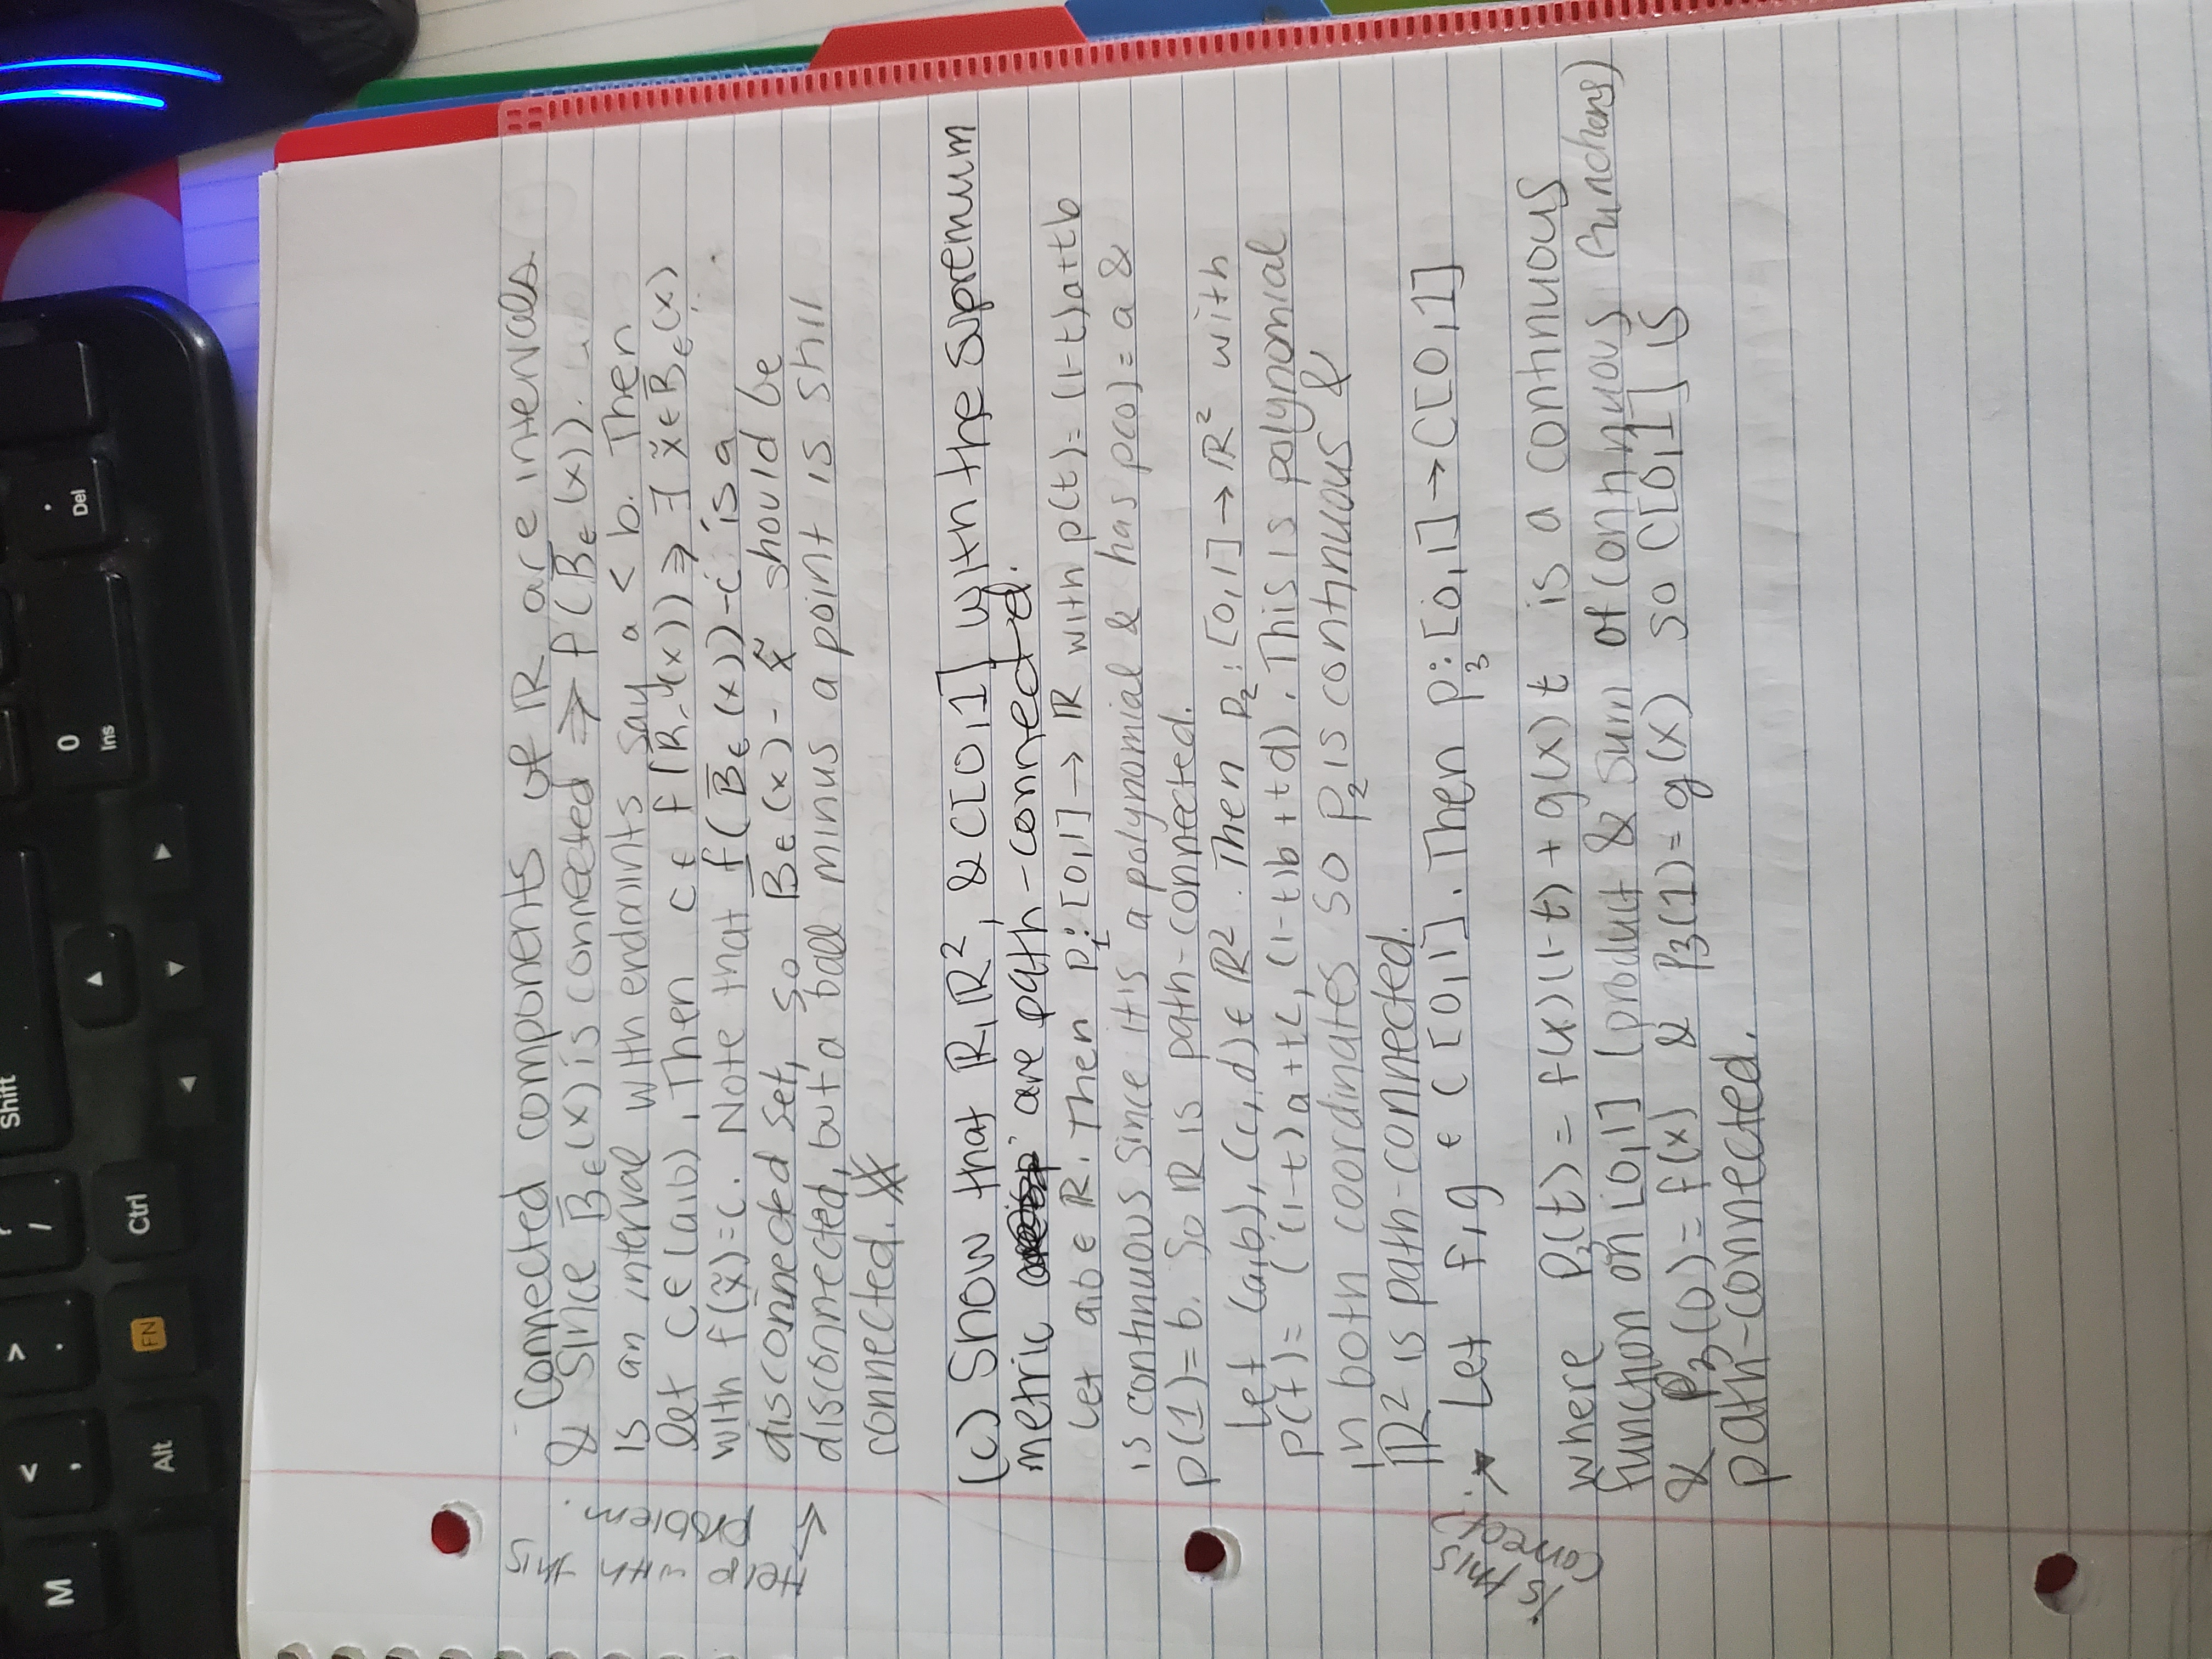 M
<
,
>
.
?
/
Shift
0
Ins
.
Del
Alt
FN
Ctrl
Help with this problem.
Connected components of ℝ are intervals
& since B̄ϵ(x) is connected ⇒ f(B̄ϵ(x)).
is an interval with endpoints say a < b. Then
let c∈(a,b), Then c ∈ f(B̄ϵ(x)) ⇒ ∃ x̃∈B̄ϵ(x)
with f(x̃)=c. Note that f(B̄ϵ(x))-c is a
disconnected set, so B̄ϵ(x) - x̃ should be
disconnected, but a ball minus a point is still
connected.
(c) Show that ℝ, ℝ², & C[0,1] with the supremum
metric are path-connected.
Let a,b ∈ ℝ. Then p₁:[0,1]→ ℝ with p(t)= (1-t)a+tb
is continuous since it's a polynomial & has p(0)= a &
p(1)= b. So ℝ is path-connected.
Let (a,b), (c,d)∈ ℝ². Then p₂:[0,1]→ℝ² with
p(t)= ((1-t)a+tc, (1-t)b+td). This is polynomial
in both coordinates so p₂ is continuous &
ℝ² is path-connected.
is this correct?
Let f,g ∈ C[0,1]. Then p₃:[0,1]→C[0,1]
where p₃(t)= f(x)(1-t)+g(x)t is a continuous
function on [0,1] (product & sum of continuous functions)
& p₃(0)= f(x) & p₃(1)= g(x) so C[0,1] is
path-connected.